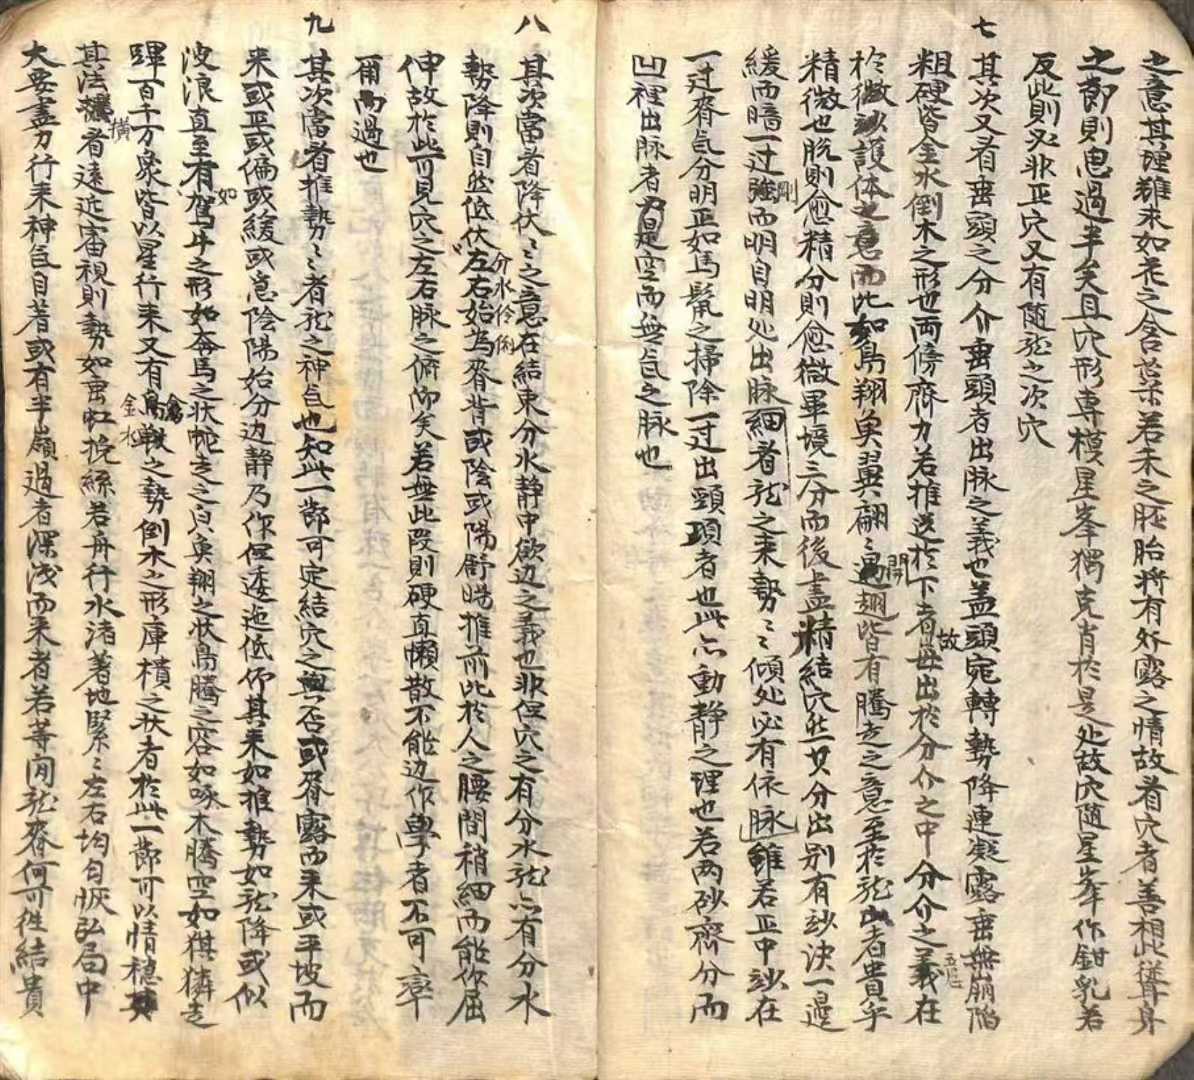 之意其理雖求如花之含蕊若未之胚胎將有外露之情故看穴者善相此從聳身
之節則思過半矣且穴形專模星峯獨克肖於是处故穴隨星峯作鉗乳若
反此則必非正穴又有隨龙之次穴
七
其次又看垂頭之分介垂頭者出脉之義也盖頭宛轉勢降連凝露垂無崩陷
粗硬皆金水倒木之形也两傍齊力若推送於下者故毋出於分介之中分介之義在
於微玅護体之意而此如鳥翔奐翼翩〻開翅皆有騰起之意至於龙者貴乎
精微也脱則愈精分則愈微畢境三分而後盡精結穴此其分出别有玅決一邊
緩而暗一过剛而明自明处出脉細者龙之来勢〻傾处必有依脉雖若正中玅在
一过脊气分明正如馬鬣之掃除一过出頭項者也此亦動静之理也若两砂齊分而
凹裡出脉者乃是空而無气之脉也
八
其次當者降伏〻之意在結束分水静中歛边之義也非但穴之有分水龙亦有分水
勢降則自然低伏左右始為脊背或陰或陽舒暢推前此於人之腰間稍細而能作屈
分水伶俐
伸故於此而見穴之左右脉之俯仰矣若無此段則硬直懶散不能边作學者不可率
爾而過也
九
其次當看推勢〻者龙之神气也知此一節可定結穴之與否或脊露而来或平坡而
来或正或偏或緩或急陰陽始分边静乃作但逶迤低仰其来如推勢如龙降或似
浪直至有如駕牛之形如奔馬之状蛇走之勢奐翔之状鳥騰之容如啄木騰空如猉獜走
驛百千万象皆以星行来又有禽之勢倒木之形庫樻之状者於此一節可以情穏
金水
其法橫看遠近宙視則勢如垂虹挽絲若舟行水渚著地緊〻左右均匀恢弘局中
大要盡力行来神气自著或有半嶺過者深浅而来者若等閒龙脊何可徃結貴